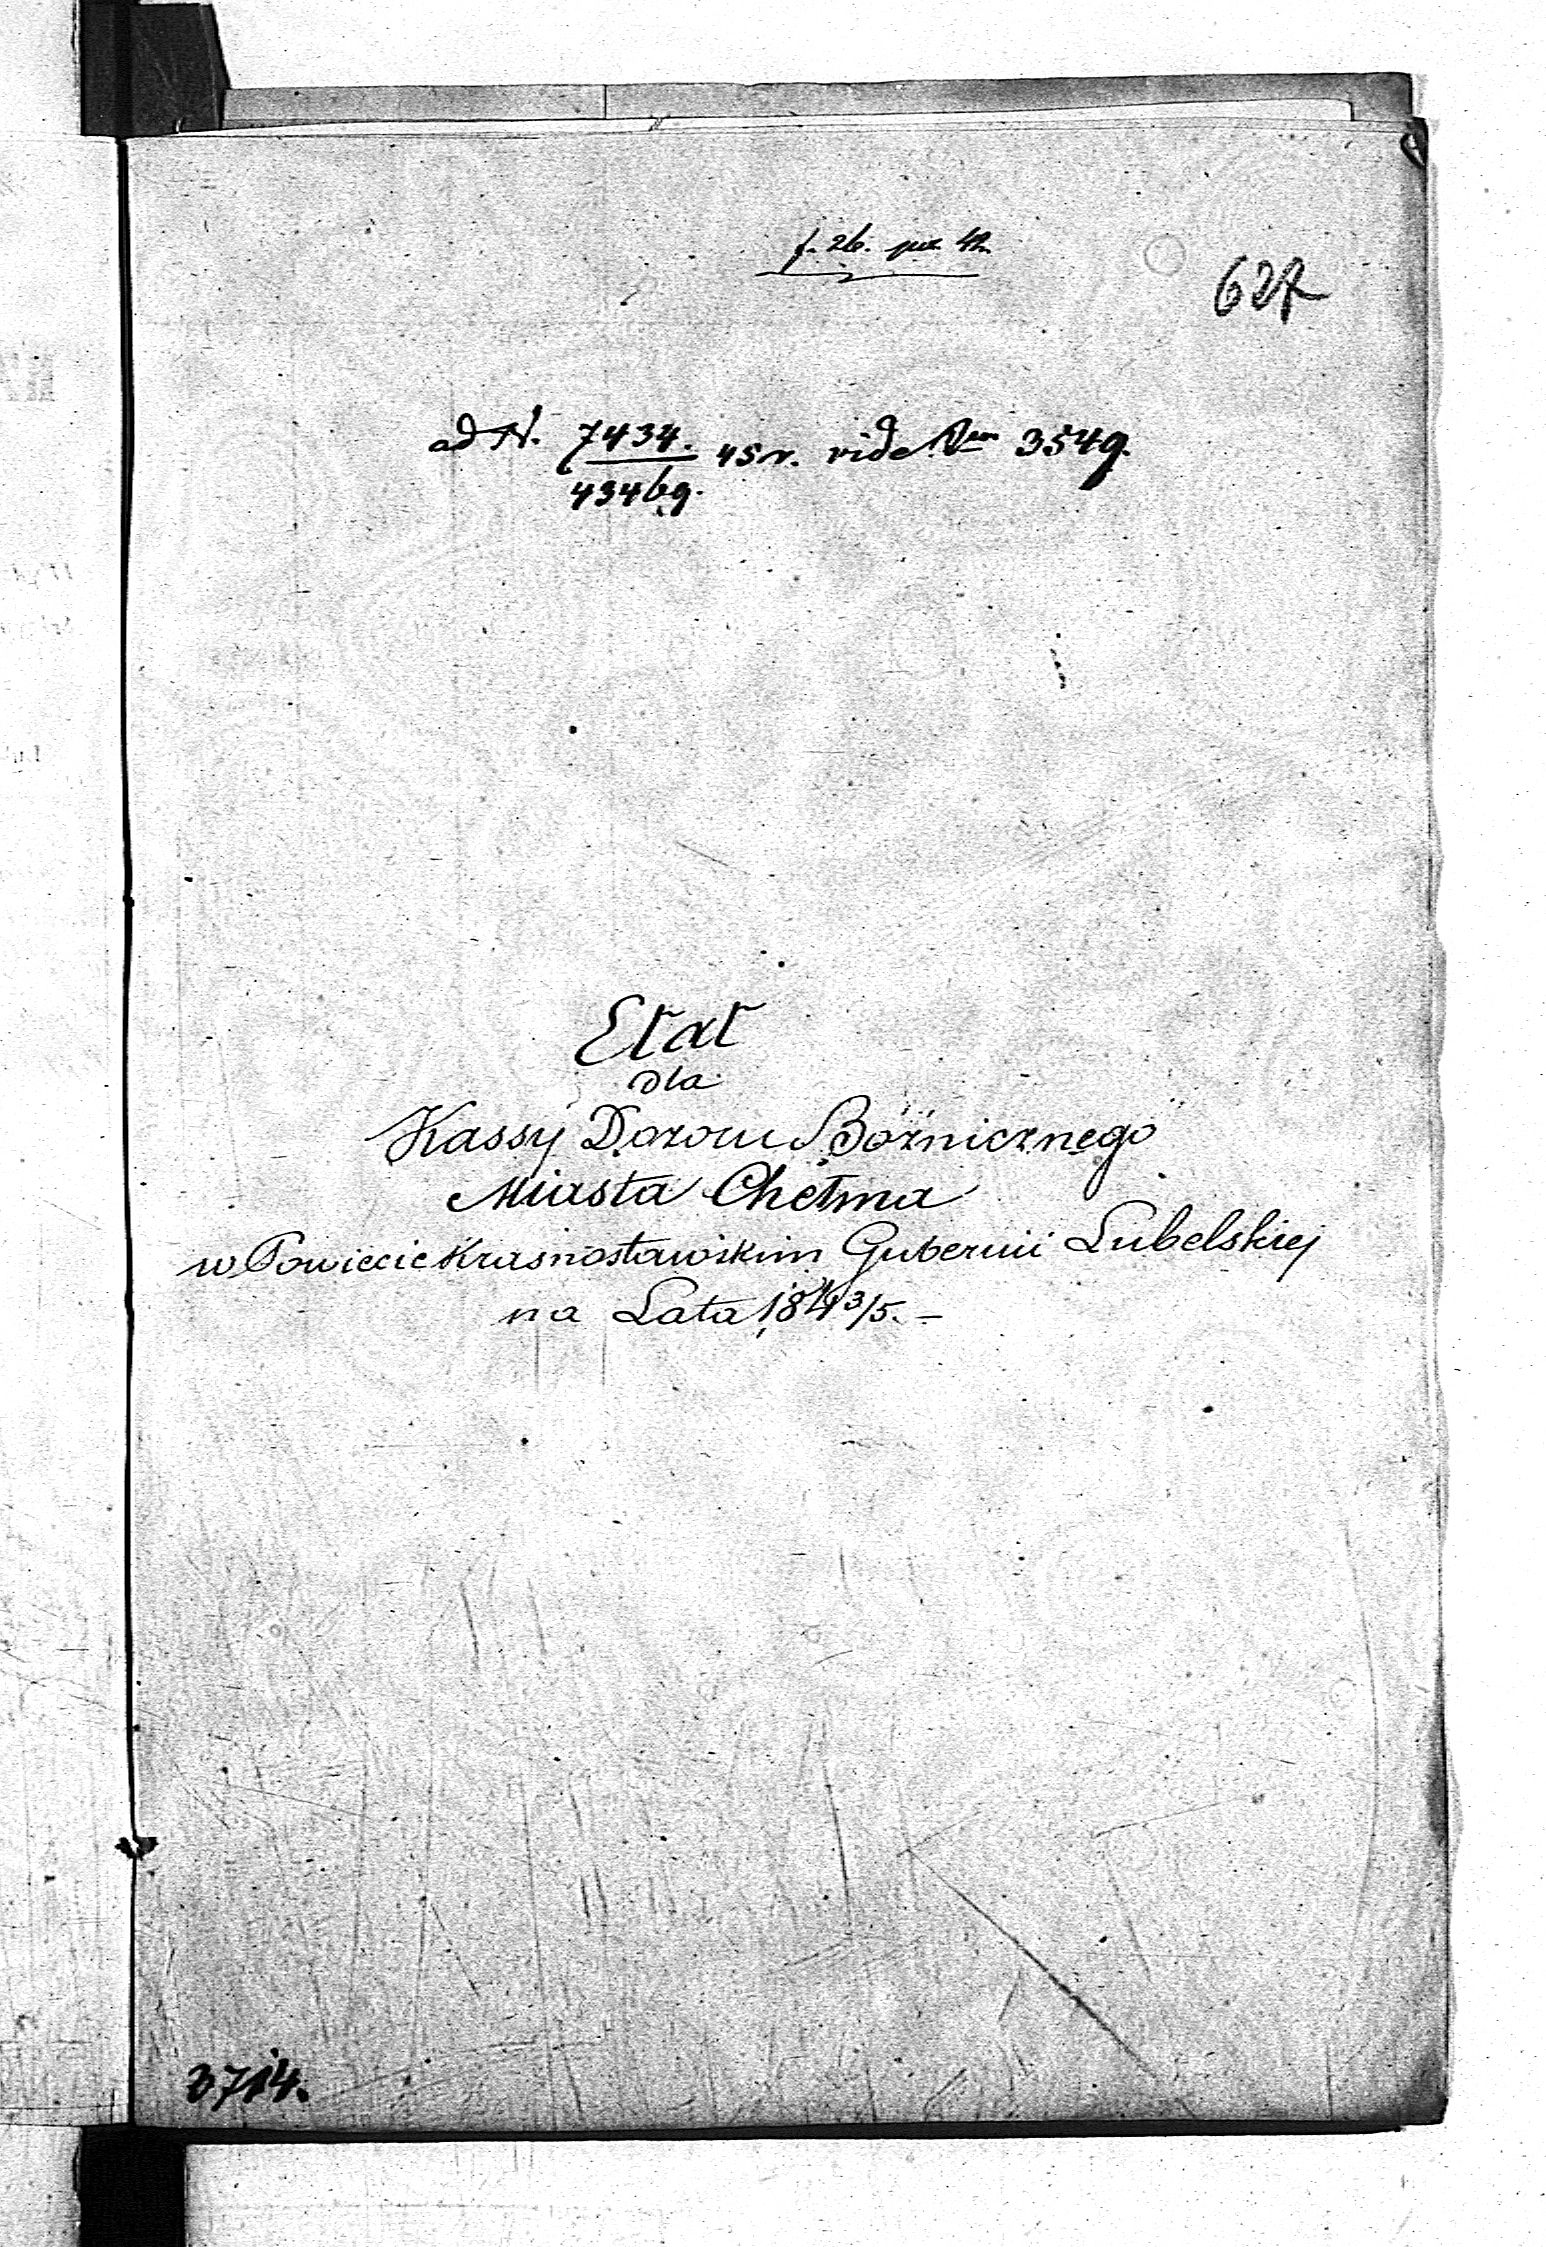 f. 26. poz 42
627
ad N. 7434. 45 r. vide Dum 3549.
43469.
Etat
dla
Kassy Dozoru Bóżnicznego
Miasta Chełma
w Powiecie Krasnostawskim Gubernii Lubelskiej
na Lata 1843/5. –
3714.